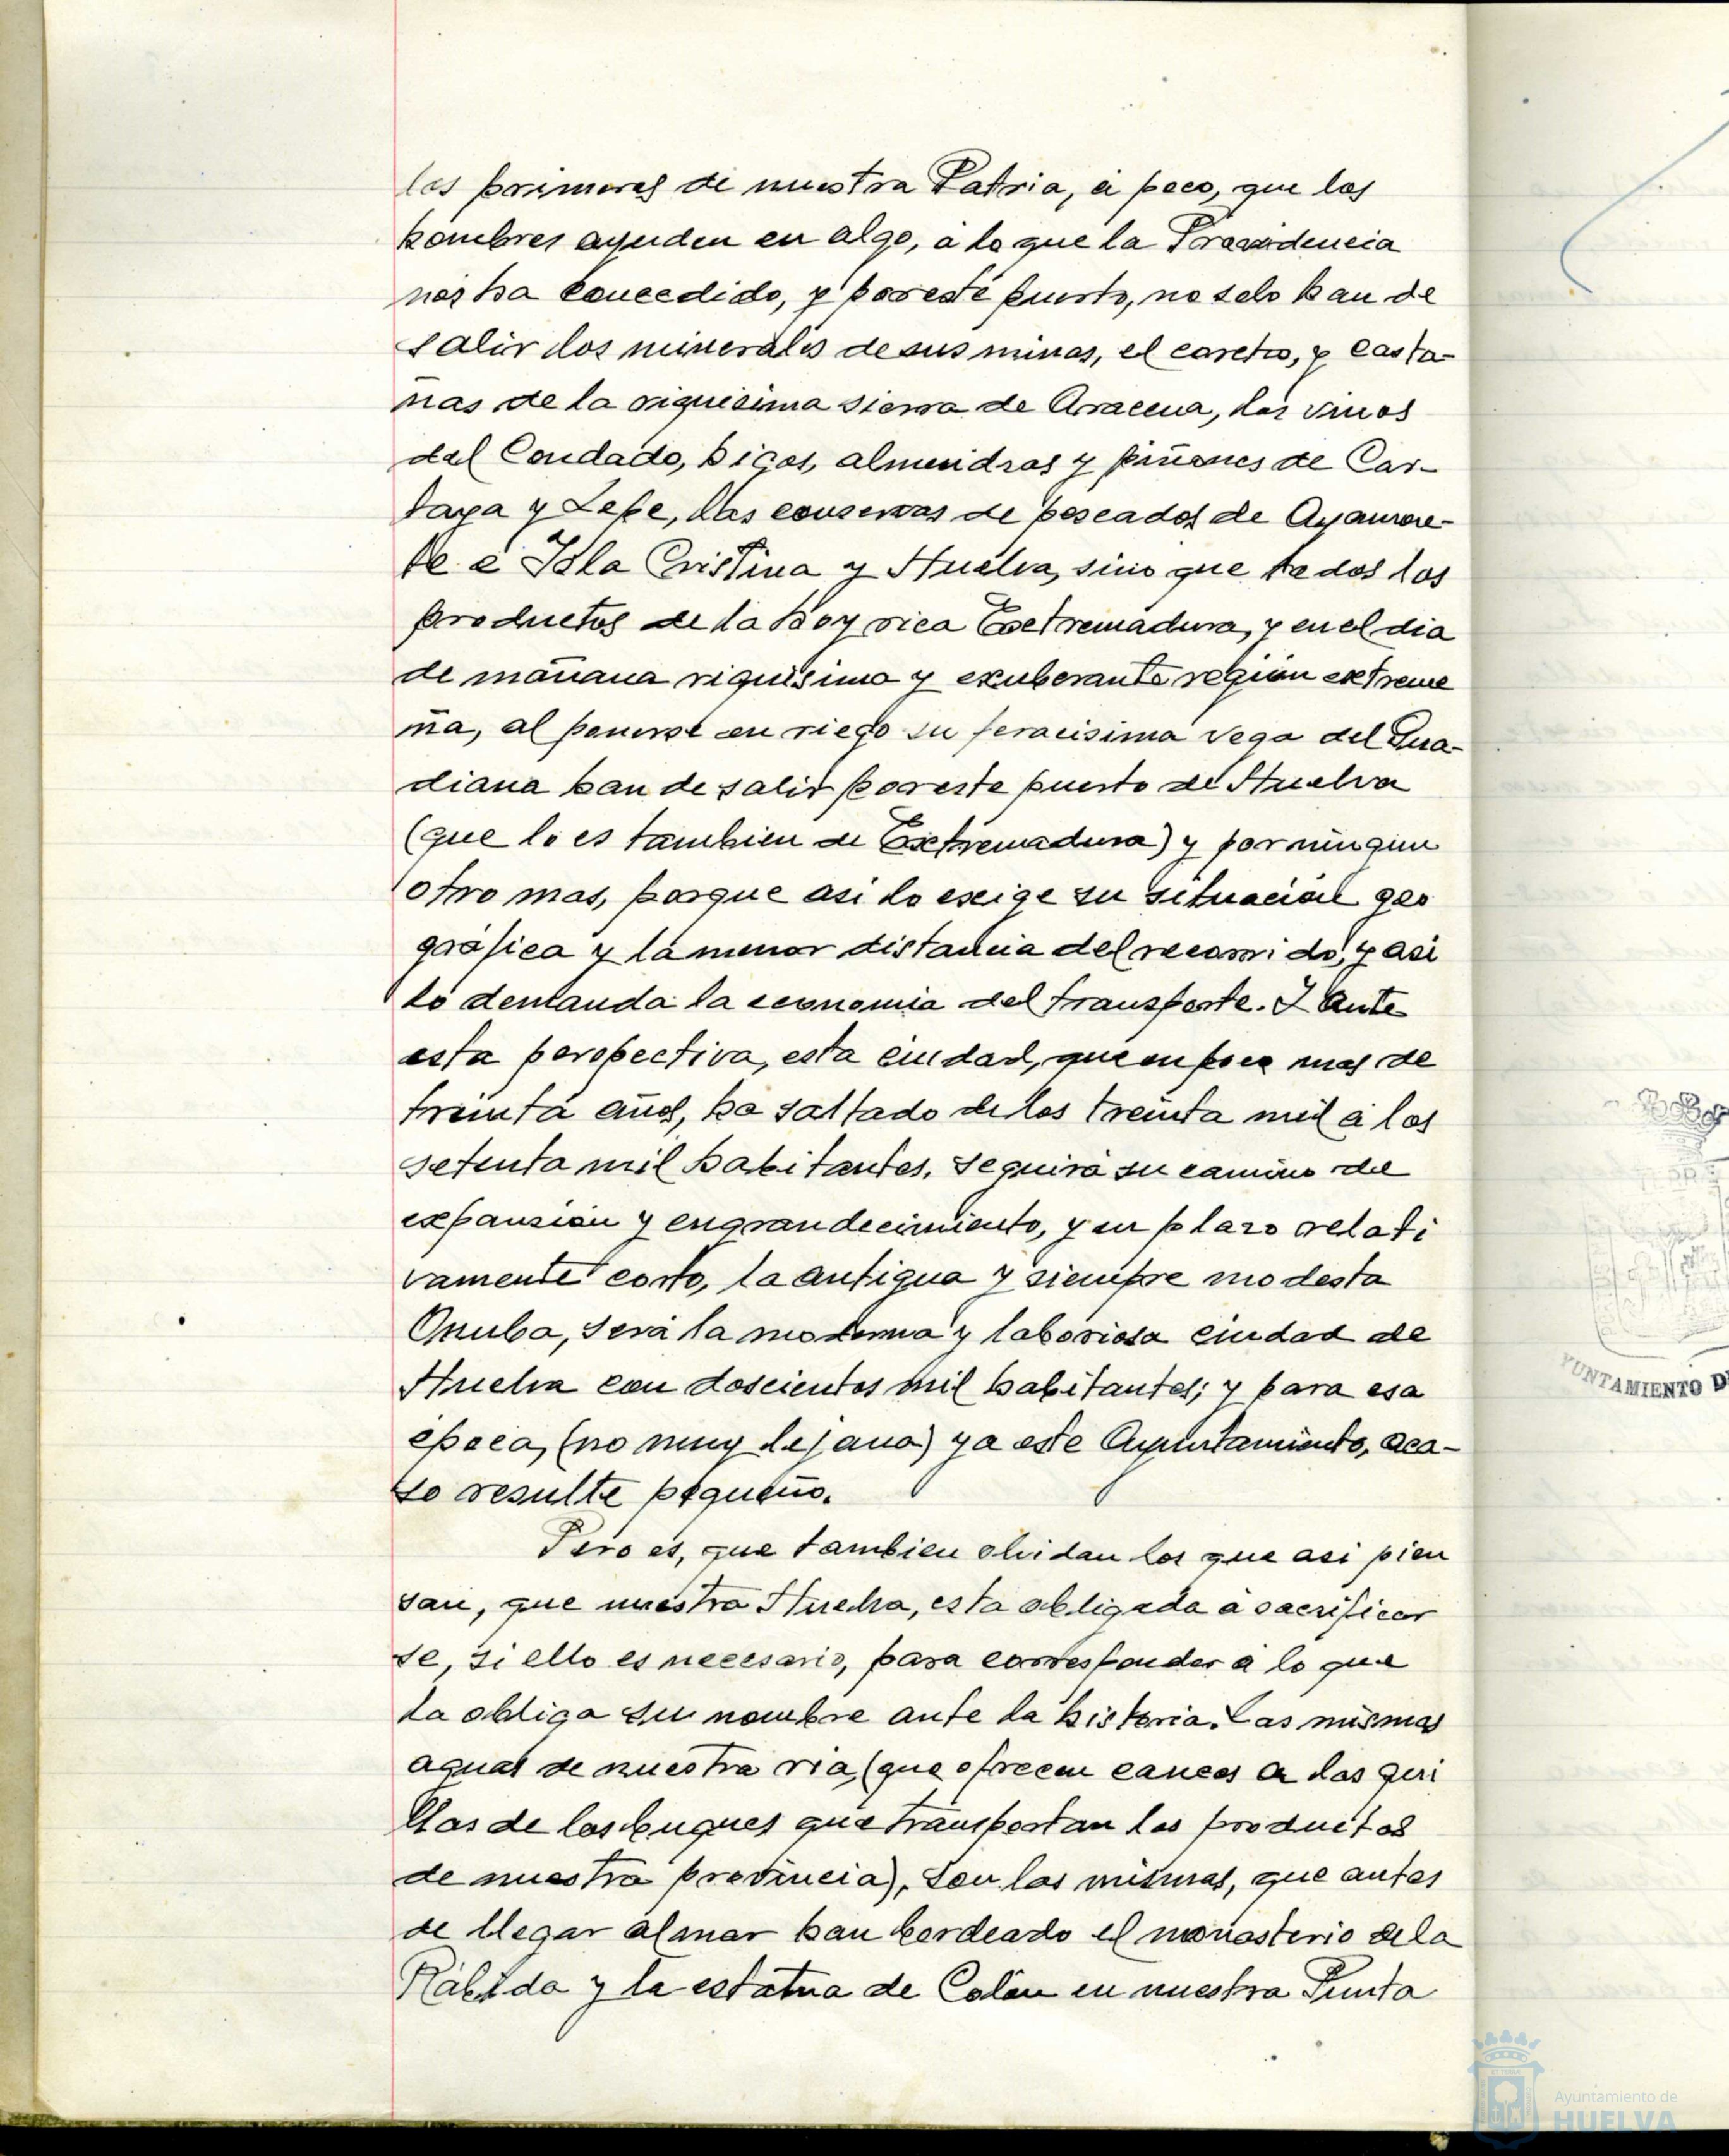 los primeros de nuestra Patria, á poco, que los
hombres ayuden en algo, a lo que la Providencia
nos ha concedido, y por este puerto, no solo han de
salir los minerales de sus minas, el corcho, y casta-
ñas de la riquisima sierra de Aracena, los vinos
del Condado, higos, almendras y piñones de Car-
taya y Lepe, las conservas de pescados de Ayamon-
te e Isla Cristina y Huelva, sino que todos los
productos de la hoy rica Extremadura, y en el dia
de mañana riquisima y exuberante region extreme
ña, al ponerse en riego su feracisima vega del Gua-
diana han de salir por este puerto de Huelva
(que lo es tambien de Extremadura) y por ningun
otro mas, porque asi lo exige su situacion geo
gráfica y la menor distancia del recorrido, y asi
lo demanda la economia del transporte. Y ante
esta perspectiva, esta ciudad, que en poco mas de
treinta años, ha saltado de los treinta mil á los
setenta mil habitantes, seguirá su camino de
expansion y engrandecimiento, y en plazo relati
vamente corto, la antigua y siempre modesta
Onuba, será la moderna y laboriosa ciudad de
Huelva con doscientos mil habitantes; y para esa
época, (no muy lejana) ya este Ayuntamiento, aca-
so resulte pequeño.
Pero es, que tambien olvidan los que asi pien
san, que nuestra Huelva, esta obligada á sacrificar
se, si ello es necesario, para corresponder á lo que
la obliga su nombre ante la historia. Las mismas
aguas de nuestra ria, (que ofrecen cauces a las qui
llas de los buques que transportan los productos
de nuestra provincia), son las mismas, que antes
de llegar al mar han bordeado el monasterio de la
Rábida y la estatua de Colón en nuestra Punta
YUNTAMIENTO D
Ayuntamiento de
HUELVA